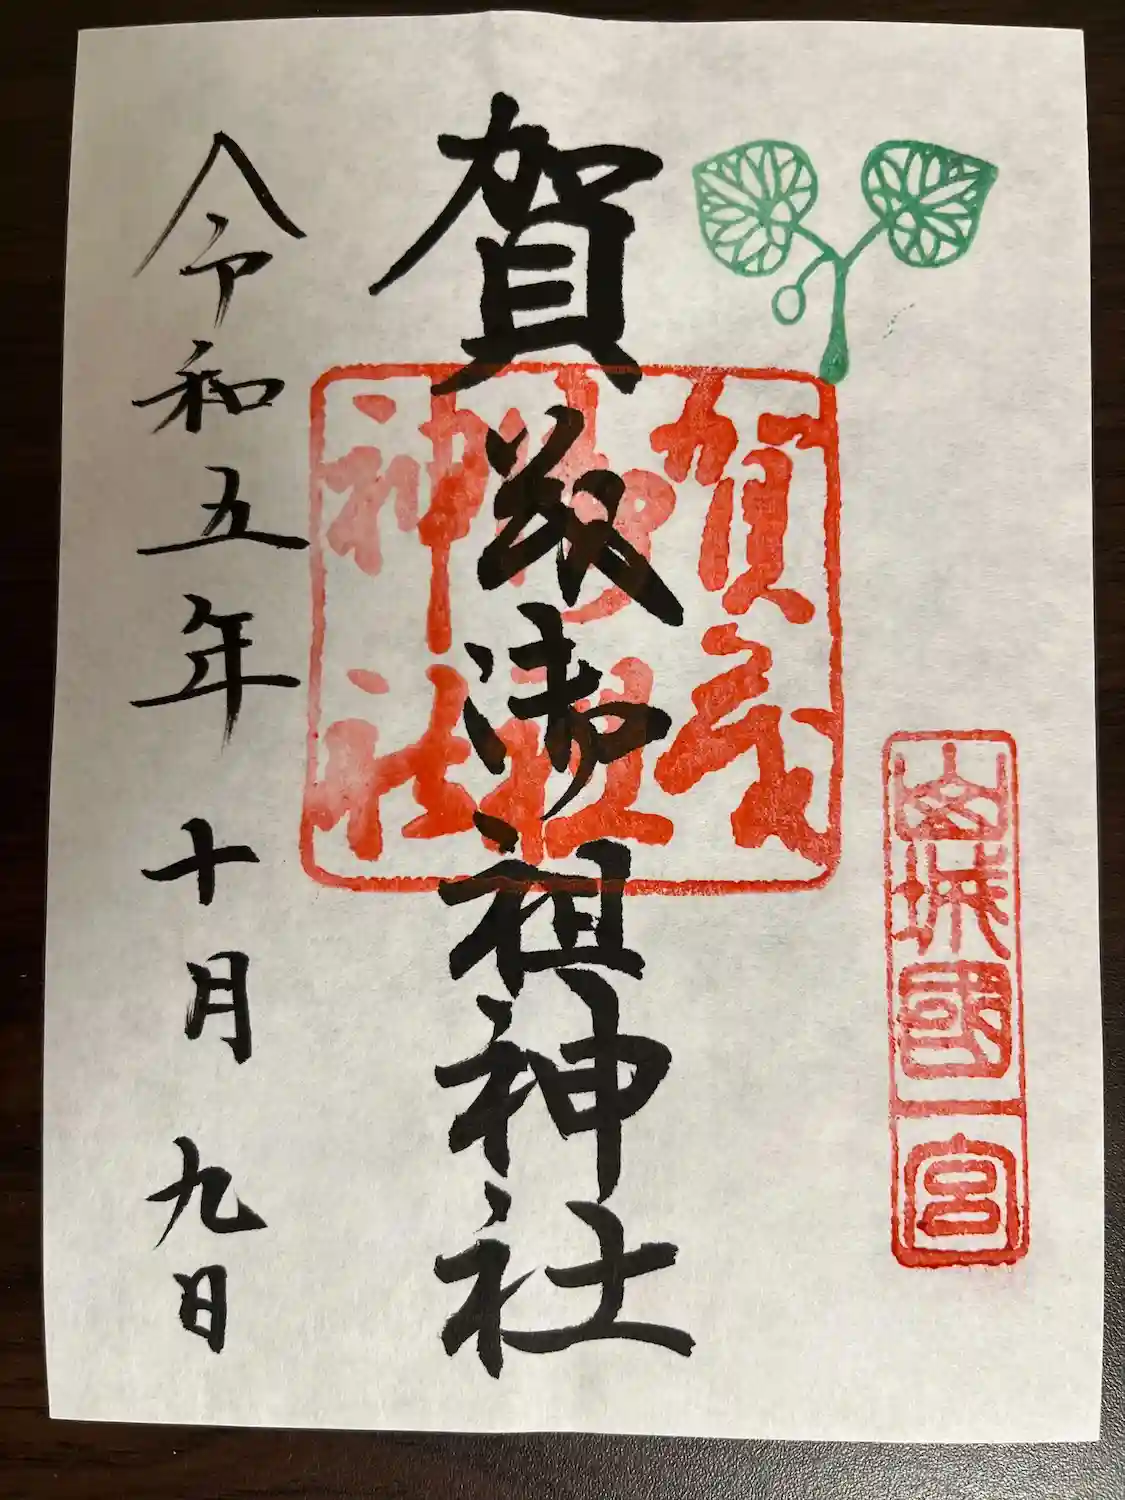 山城國一宮
賀茂御祖神社
賀茂
御祖
神社
令和五年十月九日